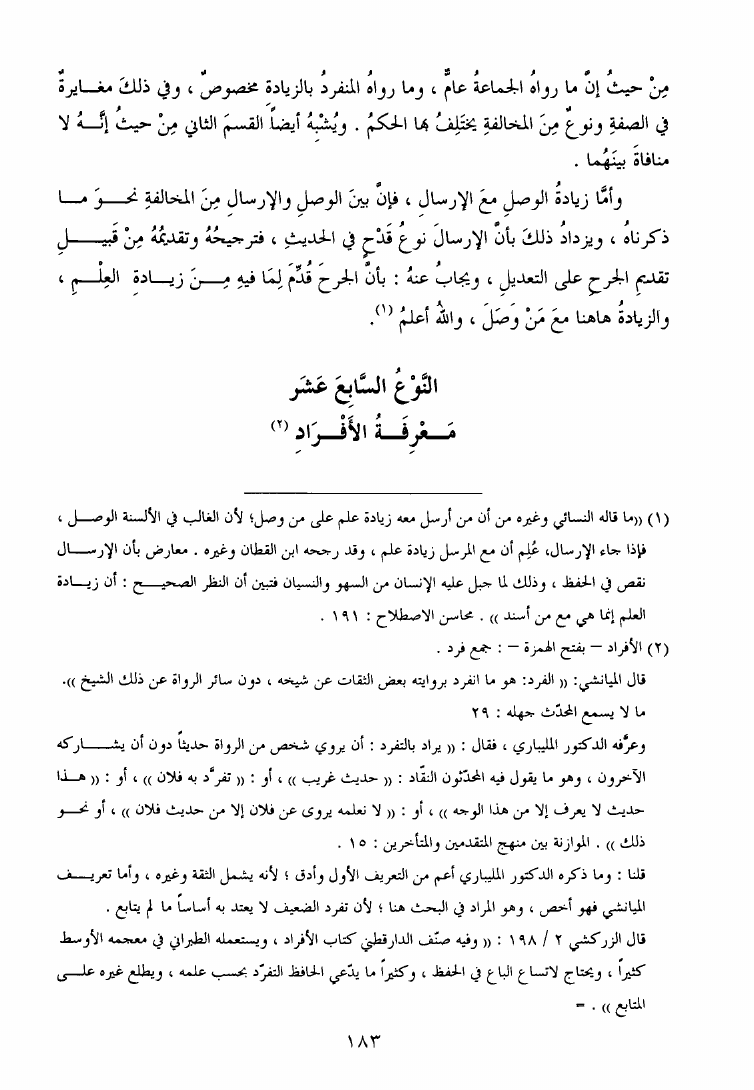 مِنْ حيثُ إنَّ ما رواهُ الجماعةُ عامٌّ ، وما رواهُ المنفردُ بالزيادةِ مخصوصٌ ، وفي ذلكَ مغـايرةٌ
في الصفةِ ونوعٌ مِنَ المخالفةِ يختَلِفُ بها الحكمُ . ويُشْبِهُ أيضاً القسمَ الثاني مِنْ حيثُ إنَّـهُ لا
منافاةَ بينَهُما .
وأمَّا زيادةُ الوصلِ معَ الإرسالِ ، فإنَّ بينَ الوصلِ والإرسالِ مِنَ المخالفةِ نحـوَ مـا
ذكرناهُ ، ويزدادُ ذلكَ بأنَّ الإرسالَ نوعُ قَدْحٍ في الحديثِ ، فترجيحُهُ وتقديمُهُ مِنْ قَبيـلِ
تقديمِ الجرحِ على التعديلِ ، ويجابُ عنهُ : بأنَّ الجرحَ قُدِّمَ لِمَا فيهِ مِـنَ زيـادةِ العِلْـمِ ،
والزيادةُ هاهنا معَ مَنْ وَصَلَ ، واللهُ أعلمُ (١).
النَّوْعُ السَّابِعَ عَشَرَ
مَـعْرِفَـةُ الأَفْـرَادِ (٢)
(١) ((ما قاله النسائي وغيره من أن من أرسل معه زيادة علم على من وصل؛ لأن الغالب في الألسنة الوصـل ،
فإذا جاء الإرسال، عُلِم أن مع المرسل زيادة علم ، وقد رجحه ابن القطان وغيره . معارض بأن الإرسـال
نقص في الحفظ ، وذلك لما جبل عليه الإنسان من السهو والنسيان فتبين أن النظر الصحيـح : أن زيـادة
العلم إنما هي مع من أسند )) . محاسن الاصطلاح : ١٩١ .
(٢) الأفراد – بفتح الهمزة – : جمع فرد .
قال الميانشي: (( الفرد: هو ما انفرد بروايته بعض الثقات عن شيخه ، دون سائر الرواة عن ذلك الشيخ )).
ما لا يسمع المحدّث جهله : ٢٩
وعرَّفه الدكتور المليباري ، فقال : (( يراد بالتفرد : أن يروي شخص من الرواة حديثاً دون أن يشـاركه
الآخرون ، وهو ما يقول فيه المحدّثون النقّاد : (( حديث غريب )) ، أو : (( تفرّد به فلان )) ، أو : (( هـذا
حديث لا يعرف إلا من هذا الوجه )) ، أو : (( لا نعلمه يروى عن فلان إلا من حديث فلان )) ، أو نحـو
ذلك )) . الموازنة بين منهج المتقدمين والمتأخرين : ١٥ .
قلنا : وما ذكره الدكتور المليباري أعم من التعريف الأول وأدق ؛ لأنه يشمل الثقة وغيره ، وأما تعريـف
الميانشي فهو أخص ، وهو المراد في البحث هنا ؛ لأن تفرد الضعيف لا يعتد به أساساً ما لم يتابع .
قال الزركشي ٢ / ١٩٨ : (( وفيه صنّف الدارقطني كتاب الأفراد ، ويستعمله الطبراني في معجمه الأوسط
كثيراً ، ويحتاج لاتساع الباع في الحفظ ، وكثيراً ما يدّعي الحافظ التفرّد بحسب علمه ، ويطلع غيره علـى
المتابع )) . =
١٨٣